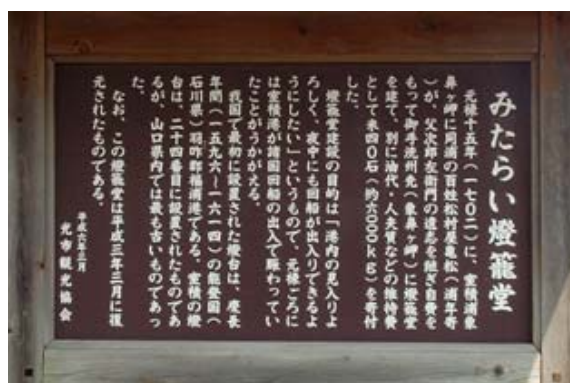 みたらい燈籠堂
元禄十五年(一七〇二)に、室積浦象
鼻ヶ岬に同浦の百姓松村屋亀松(浦年寄
)が、父次郎左衛門の遺志を継ぎ自費を
もって御手洗州先(象鼻ヶ岬)に燈籠堂
を建て、別に油代・人夫賃などの維持費
として米四〇石(約六〇〇〇kg)を寄付
した。
燈籠堂建設の目的は「港内の見入りよ
ろしく、夜中にも回船が出入りできるよ
うにしたい」というもので、元禄ごろに
は室積港が諸国回船の出入で賑わってい
たことがうかがえる。
我国で最初に設置された燈台は、慶長
年間(一五九六〜一六一四)の能登国(
石川県)羽咋郡福浦港である。室積の燈
台は、二十四番目に設置されたものであ
るが、山口県内では最も古いものであっ
た。
なお、この燈籠堂は平成三年三月に復
元されたものである。
平成六年三月
光市観光協会